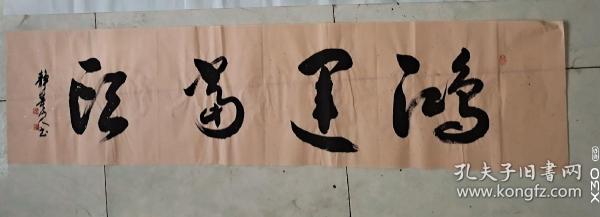 鸿运当头
孔夫子旧书网
www.kongfz.com
X30